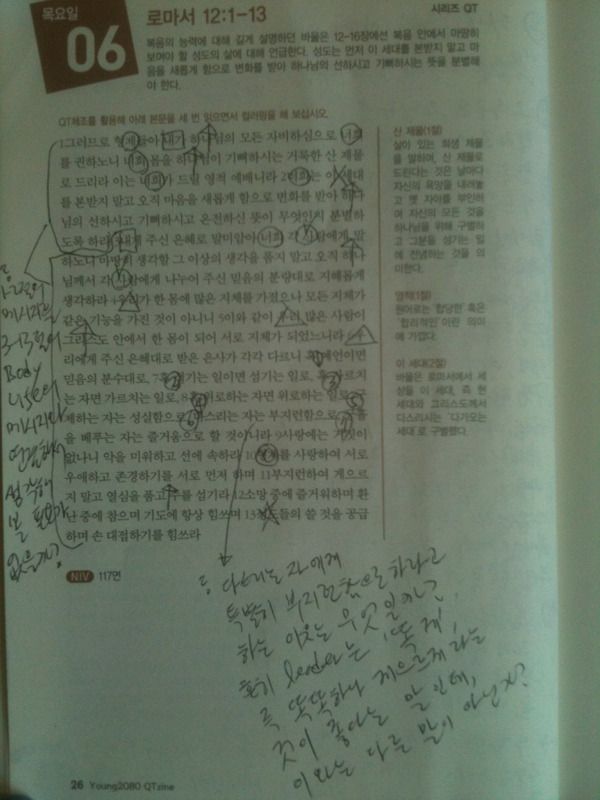 목요일
06
로마서 12:1-13
시리즈 QT
복음의 능력에 대해 길게 설명하던 바울은 12-16장에선 복음 안에서 마땅히
보여야 할 성도의 삶에 대해 언급한다. 성도는 먼저 이 세대를 본받지 말고 마
음을 새롭게 함으로 변화를 받아 하나님의 선하시고 기뻐하시는 뜻을 분별해
야 한다.
QT체조를 활용해 아래 본문을 세 번 읽으면서 컬러링을 해 보십시오.
1그러므로 형제들아 내가 하나님의 모든 자비하심으로 너희
를 권하노니 너희 몸을 하나님이 기뻐하시는 거룩한 산 제물
로 드리라 이는 너희가 드릴 영적 예배니라 2너희는 이 세대
를 본받지 말고 오직 마음을 새롭게 함으로 변화를 받아 하나
님의 선하시고 기뻐하시고 온전하신 뜻이 무엇인지 분별하
도록 하라 3내게 주신 은혜로 말미암아 너희 각 사람에게 말
하노니 마땅히 생각할 그 이상의 생각을 품지 말고 오직 하나
님께서 각 사람에게 나누어 주신 믿음의 분량대로 지혜롭게
생각하라 4우리가 한 몸에 많은 지체를 가졌으나 모든 지체가
같은 기능을 가진 것이 아니니 5이와 같이 우리 많은 사람이
그리스도 안에서 한 몸이 되어 서로 지체가 되었느니라 6우
리에게 주신 은혜대로 받은 은사가 각각 다르니 혹 예언이면
믿음의 분수대로, 7혹 섬기는 일이면 섬기는 일로, 혹 가르치
는 자면 가르치는 일로, 8혹 위로하는 자면 위로하는 일로, 구
제하는 자는 성실함으로, 다스리는 자는 부지런함으로, 긍휼
을 베푸는 자는 즐거움으로 할 것이니라 9사랑에는 거짓이
없나니 악을 미워하고 선에 속하라 10형제를 사랑하여 서로
우애하고 존경하기를 서로 먼저 하며 11부지런하여 게으르
지 말고 열심을 품고 주를 섬기라 12소망 중에 즐거워하며 환
난 중에 참으며 기도에 항상 힘쓰며 13성도들의 쓸 것을 공급
하며 손 대접하기를 힘쓰라
NIV 117면
산 제물(1절)
살아 있는 희생 제물
을 말하며, 산 제물로
드린다는 것은 날마다
자신의 욕망을 내려놓
고 옛 자아를 부인하
며 자신의 모든 것을
하나님을 위해 구별하
고 그분을 섬기는 일
에 전념하는 것을 의
미한다.
영적(1절)
원어로는 '합당한' 혹은
'합리적인' 이란 의미
에 가깝다.
이 세대(2절)
바울은 로마서에서 세
상을 이 세대, 즉 현
세대와 그리스도께서
다스리시는 '다가오는
세대'로 구별했다.
1-2절의
메시지와
3-13절의
Body
메시지
연결해서
생각해
볼
없을까?
다스리는 자에게
특별히 부지런함으로 하라고
하는 이유는 무엇일까?
흔히 leader는 '똑게',
즉 똑똑하나 게으르게 라는
것이 좋다는 말인데,
이와는 다른 말이 아닌지?
26 Young2080 QTzine